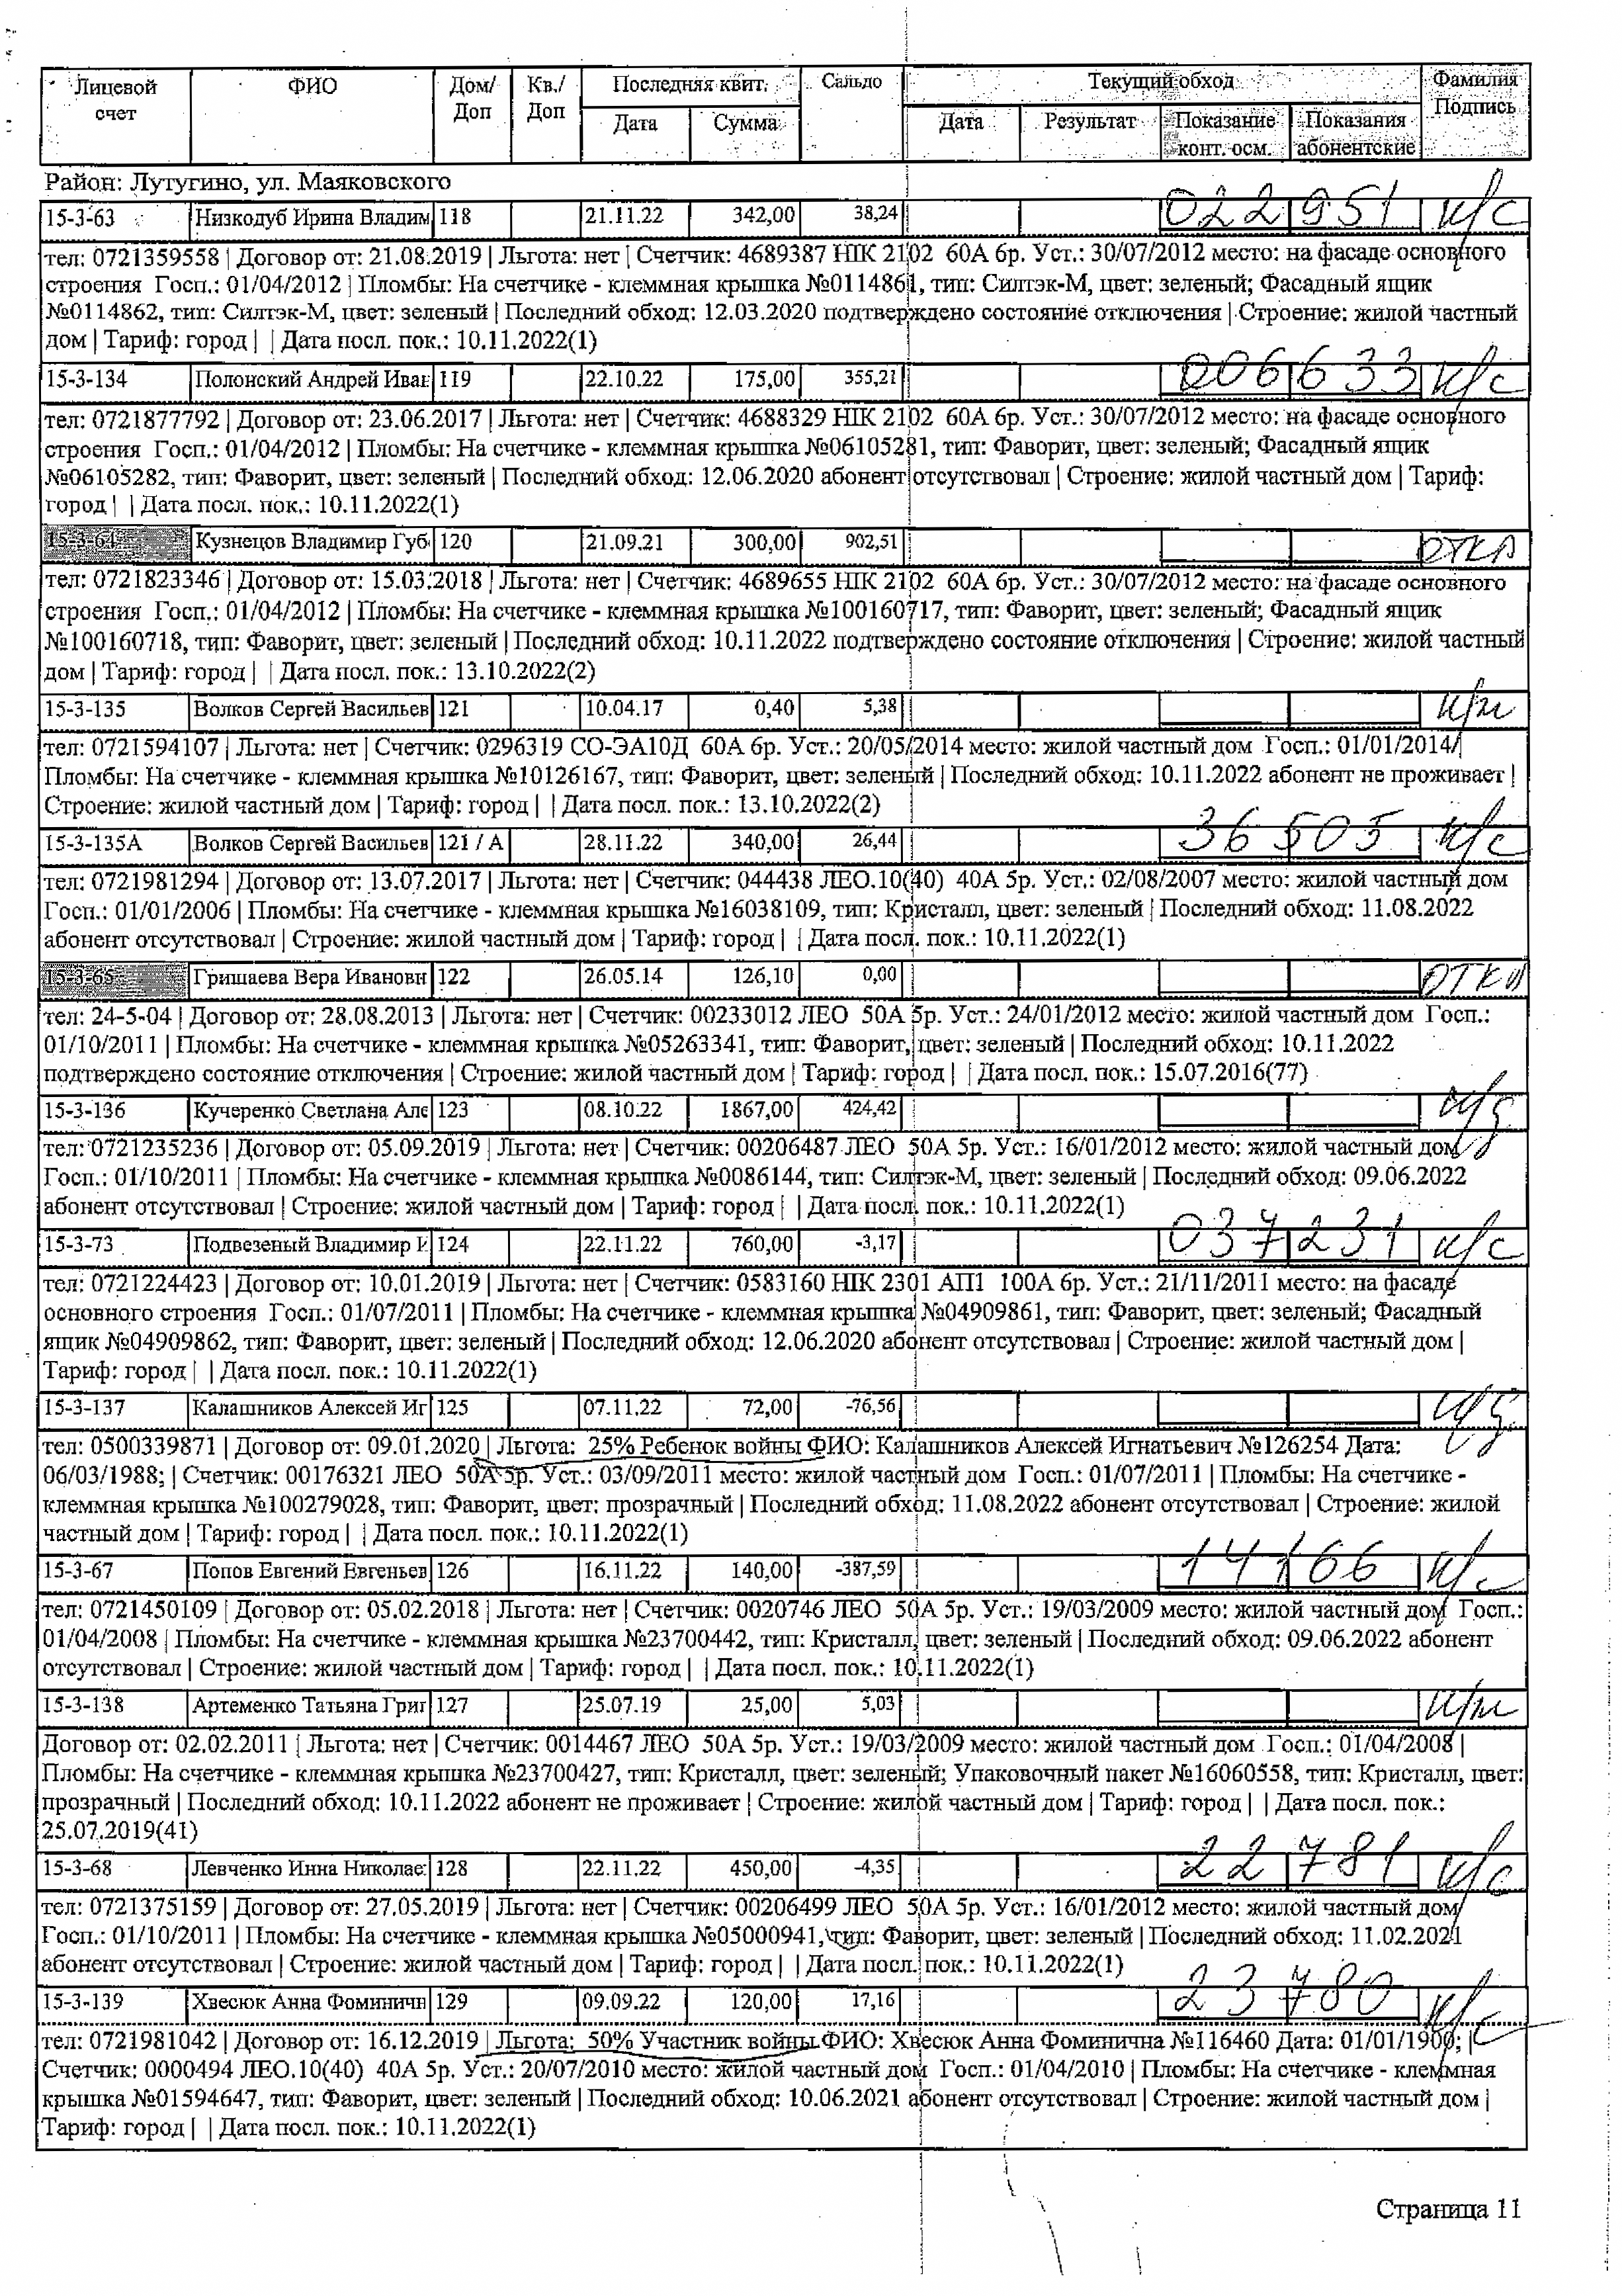 Лицевой счет | ФИО | Дом/Доп | Кв./Доп | Последняя квит. | Сальдо | Текущий обход | Фамилия Подпись
Дата | Сумма | Дата | Результат | Показание конт. осм. | Показания абонентские
Район: Лутугино, ул. Маяковского
15-3-63 | Низкодуб Ирина Владим | 118 | 21.11.22 | 342,00 | 38,24 | 022951 | к/с
тел: 0721359558 | Договор от: 21.08.2019 | Льгота: нет | Счетчик: 4689387 НІК 2102 60А 6р. Уст.: 30/07/2012 место: на фасаде основного
строения Госп.: 01/04/2012 | Пломбы: На счетчике - клеммная крышка №0114861, тип: Силтэк-М, цвет: зеленый; Фасадный ящик
№0114862, тип: Силтэк-М, цвет: зеленый | Последний обход: 12.03.2020 подтверждено состояние отключения | Строение: жилой частный
дом | Тариф: город | | Дата посл. пок.: 10.11.2022(1)
15-3-134 | Полонский Андрей Иван | 119 | 22.10.22 | 175,00 | 355,21 | 006633 | к/с
тел: 0721877792 | Договор от: 23.06.2017 | Льгота: нет | Счетчик: 4688329 НІК 2102 60А 6р. Уст.: 30/07/2012 место: на фасаде основного
строения Госп.: 01/04/2012 | Пломбы: На счетчике - клеммная крышка №06105281, тип: Фаворит, цвет: зеленый; Фасадный ящик
№06105282, тип: Фаворит, цвет: зеленый | Последний обход: 12.06.2020 абонент отсутствовал | Строение: жилой частный дом | Тариф:
город | | Дата посл. пок.: 10.11.2022(1)
15-3-64 | Кузнецов Владимир Губ | 120 | 21.09.21 | 300,00 | 902,51 | откл
тел: 0721823346 | Договор от: 15.03.2018 | Льгота: нет | Счетчик: 4689655 НІК 2102 60А 6р. Уст.: 30/07/2012 место: на фасаде основного
строения Госп.: 01/04/2012 | Пломбы: На счетчике - клеммная крышка №100160717, тип: Фаворит, цвет: зеленый; Фасадный ящик
№100160718, тип: Фаворит, цвет: зеленый | Последний обход: 10.11.2022 подтверждено состояние отключения | Строение: жилой частный
дом | Тариф: город | | Дата посл. пок.: 13.10.2022(2)
15-3-135 | Волков Сергей Васильев | 121 | 10.04.17 | 0,40 | 5,38
тел: 0721594107 | Льгота: нет | Счетчик: 0296319 СО-ЭА10Д 60А 6р. Уст.: 20/05/2014 место: жилой частный дом Госп.: 01/01/2014 |
Пломбы: На счетчике - клеммная крышка №10126167, тип: Фаворит, цвет: зеленый | Последний обход: 10.11.2022 абонент не проживает |
Строение: жилой частный дом | Тариф: город | | Дата посл. пок.: 13.10.2022(2)
15-3-135А | Волков Сергей Васильев | 121 / А | 28.11.22 | 340,00 | 26,44 | 36505 | к/с
тел: 0721981294 | Договор от: 13.07.2017 | Льгота: нет | Счетчик: 044438 ЛЕО.10(40) 40А 5р. Уст.: 02/08/2007 место: жилой частный дом
Госп.: 01/01/2006 | Пломбы: На счетчике - клеммная крышка №16038109, тип: Кристалл, цвет: зеленый | Последний обход: 11.08.2022
абонент отсутствовал | Строение: жилой частный дом | Тариф: город | | Дата посл. пок.: 10.11.2022(1)
15-3-65 | Гришаева Вера Ивановн | 122 | 26.05.14 | 126,10 | 0,00 | откл
тел: 24-5-04 | Договор от: 28.08.2013 | Льгота: нет | Счетчик: 00233012 ЛЕО 50А 5р. Уст.: 24/01/2012 место: жилой частный дом Госп.:
01/10/2011 | Пломбы: На счетчике - клеммная крышка №05263341, тип: Фаворит, цвет: зеленый | Последний обход: 10.11.2022
подтверждено состояние отключения | Строение: жилой частный дом | Тариф: город | | Дата посл. пок.: 15.07.2016(77)
15-3-136 | Кучеренко Светлана Але | 123 | 08.10.22 | 1867,00 | 424,42
тел: 0721235236 | Договор от: 05.09.2019 | Льгота: нет | Счетчик: 00206487 ЛЕО 50А 5р. Уст.: 16/01/2012 место: жилой частный дом
Госп.: 01/10/2011 | Пломбы: На счетчике - клеммная крышка №0086144, тип: Силтэк-М, цвет: зеленый | Последний обход: 09.06.2022
абонент отсутствовал | Строение: жилой частный дом | Тариф: город | | Дата посл. пок.: 10.11.2022(1)
15-3-73 | Подвезеный Владимир | 124 | 22.11.22 | 760,00 | -3,17 | 037231 | к/с
тел: 0721224423 | Договор от: 10.01.2019 | Льгота: нет | Счетчик: 0583160 НІК 2301 АП1 100А 6р. Уст.: 21/11/2011 место: на фасаде
основного строения Госп.: 01/07/2011 | Пломбы: На счетчике - клеммная крышка №04909861, тип: Фаворит, цвет: зеленый; Фасадный
ящик №04909862, тип: Фаворит, цвет: зеленый | Последний обход: 12.06.2020 абонент отсутствовал | Строение: жилой частный дом |
Тариф: город | | Дата посл. пок.: 10.11.2022(1)
15-3-137 | Калашников Алексей Иг | 125 | 07.11.22 | 72,00 | -76,56
тел: 0500339871 | Договор от: 09.01.2020 | Льгота: 25% Ребенок войны ФИО: Калашников Алексей Игнатьевич №126254 Дата:
06/03/1988; | Счетчик: 00176321 ЛЕО 50А 5р. Уст.: 03/09/2011 место: жилой частный дом Госп.: 01/07/2011 | Пломбы: На счетчике -
клеммная крышка №100279028, тип: Фаворит, цвет: прозрачный | Последний обход: 11.08.2022 абонент отсутствовал | Строение: жилой
частный дом | Тариф: город | | Дата посл. пок.: 10.11.2022(1)
15-3-67 | Попов Евгений Евгеньев | 126 | 16.11.22 | 140,00 | -387,59 | 14166 | к/с
тел: 0721450109 | Договор от: 05.02.2018 | Льгота: нет | Счетчик: 0020746 ЛЕО 50А 5р. Уст.: 19/03/2009 место: жилой частный дом Госп.:
01/04/2008 | Пломбы: На счетчике - клеммная крышка №23700442, тип: Кристалл, цвет: зеленый | Последний обход: 09.06.2022 абонент
отсутствовал | Строение: жилой частный дом | Тариф: город | | Дата посл. пок.: 10.11.2022(1)
15-3-138 | Артеменко Татьяна Григ | 127 | 25.07.19 | 25,00 | 5,03
Договор от: 02.02.2011 | Льгота: нет | Счетчик: 0014467 ЛЕО 50А 5р. Уст.: 19/03/2009 место: жилой частный дом Госп.: 01/04/2008 |
Пломбы: На счетчике - клеммная крышка №23700427, тип: Кристалл, цвет: зеленый; Упаковочный пакет №16060558, тип: Кристалл, цвет:
прозрачный | Последний обход: 10.11.2022 абонент не проживает | Строение: жилой частный дом | Тариф: город | | Дата посл. пок.:
25.07.2019(41)
15-3-68 | Левченко Инна Николае | 128 | 22.11.22 | 450,00 | -4,35 | 22781 | к/с
тел: 0721375159 | Договор от: 27.05.2019 | Льгота: нет | Счетчик: 00206499 ЛЕО 50А 5р. Уст.: 16/01/2012 место: жилой частный дом
Госп.: 01/10/2011 | Пломбы: На счетчике - клеммная крышка №05000941, тип: Фаворит, цвет: зеленый | Последний обход: 11.02.2021
абонент отсутствовал | Строение: жилой частный дом | Тариф: город | | Дата посл. пок.: 10.11.2022(1)
15-3-139 | Хвесюк Анна Фоминичн | 129 | 09.09.22 | 120,00 | 17,16 | 23780 | к/с
тел: 0721981042 | Договор от: 16.12.2019 | Льгота: 50% Участник войны ФИО: Хвесюк Анна Фоминична №116460 Дата: 01/01/1900; |
Счетчик: 0000494 ЛЕО.10(40) 40А 5р. Уст.: 20/07/2010 место: жилой частный дом Госп.: 01/04/2010 | Пломбы: На счетчике - клеммная
крышка №01594647, тип: Фаворит, цвет: зеленый | Последний обход: 10.06.2021 абонент отсутствовал | Строение: жилой частный дом |
Тариф: город | | Дата посл. пок.: 10.11.2022(1)
Страница 11